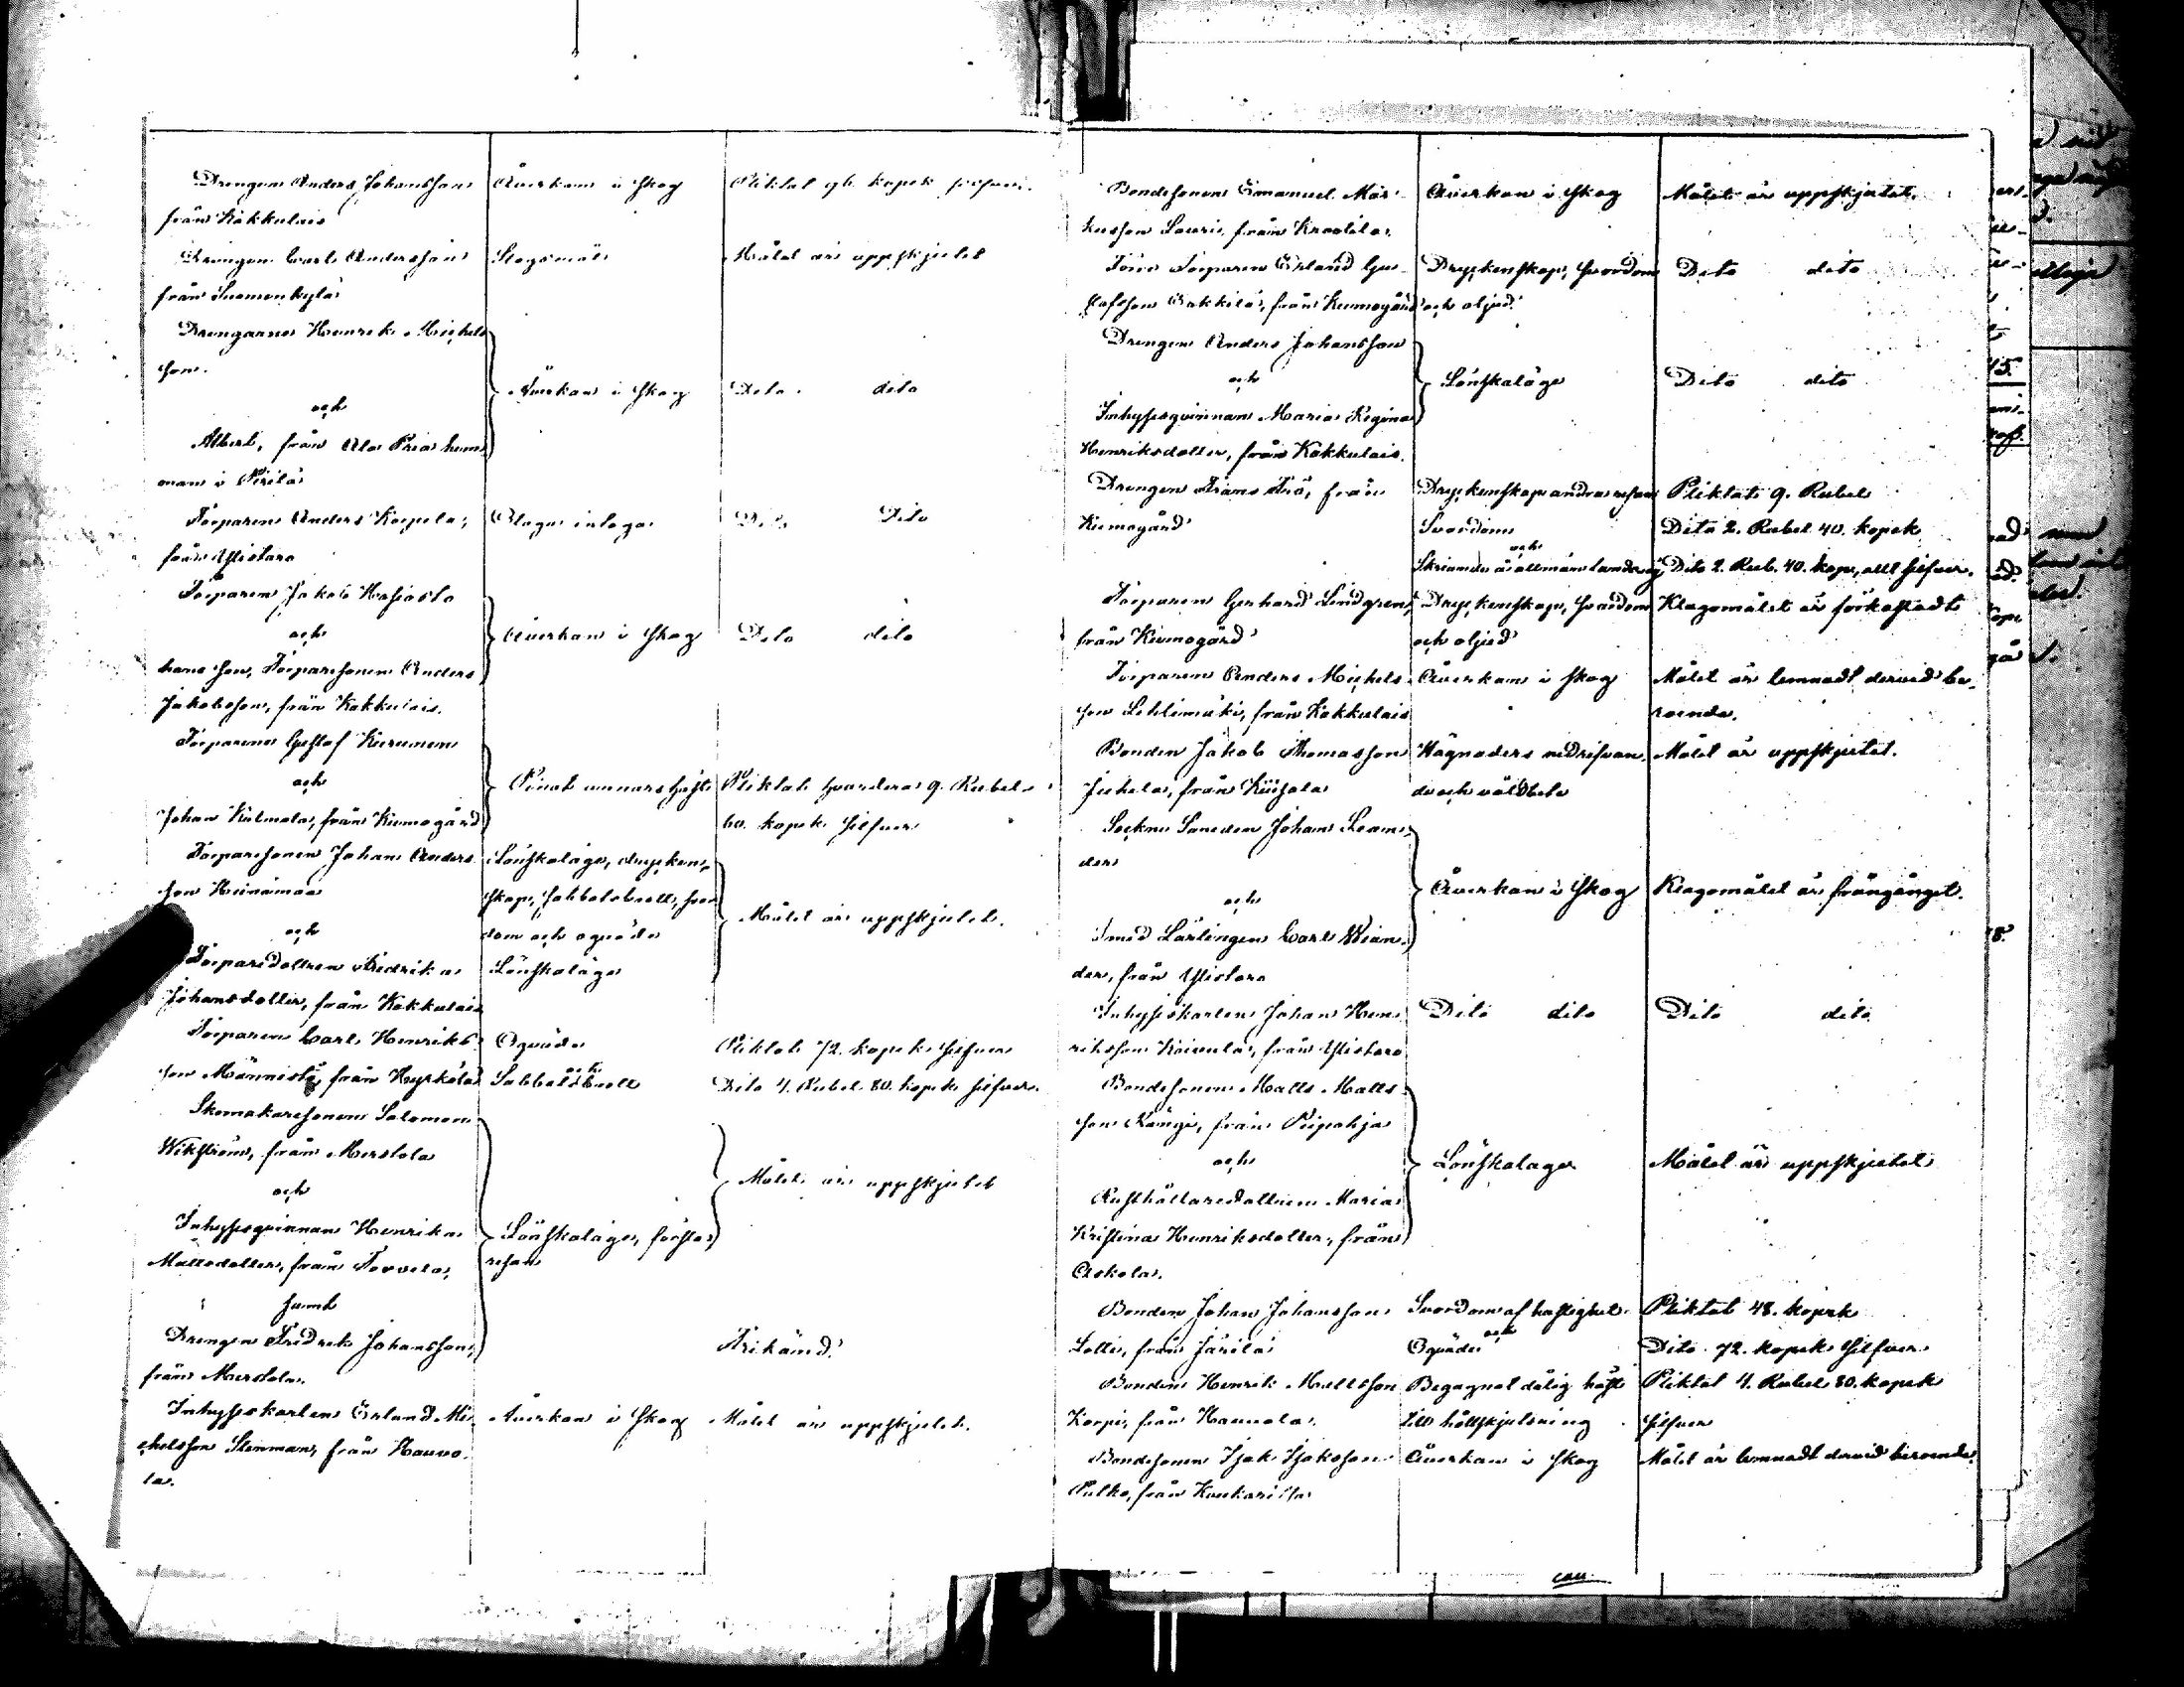 Drengen Anders Johansson
från Kakkulais
Åverkan i skog
Pliktat 96 kopek silfver.
Drengen Carl Andersson
från Suomenkylä
Slagsmål
Målet är uppskjutet
Drengarne Henrik Michels
son.
och
Albert, från Ala Pria hem
man i Pirilä
Åverkan i skog
Dito dito
Torparen Anders Korpela,
från Ylistaro
Olaga intaga
Dito Dito
Torparen Jakob
och
hans son, Torparesonen Anders
Jakobsson, från Kakkulais.
Åverkan i skog
Dito dito
Torparene Gustaf Kurunen
och
Johan Kulmala, från Kiumogård
Pliktat hvardera 9. Rubel
60. kopek silfver
Torparesonen Johan Anders
son Heinämaa
och
Torparedottren Fredrika
Johansdotter, från Kakkulais
Lönskaläge, drycken
skap, sabbatsbrott, svor
dom och oqväde
Lönskaläge
Målet är uppskjutet.
Torparen Carl Henriks
son Männistö, från Hyrkölä
Oqväde
och
Sabbatsbrott
Pliktat 72. kopek silfver
Dito 4. Rubel 80. kopek silfver.
Skomakaresonen Salomon
Wikström, från Merstola
och
Inhysesqvinnan Henrika
Mattsdotter, från Torvela,
samt
Drengen Fredrik Johansson,
från Merstola.
Lönskaläge, första
resan
Målet är uppskjutet
Frikänd.
Inhyseskarlen Erland Mi
chelsson Stenman, från Hauvo
la.
Åverkan i skog
Målet är uppskjutet.
Bondesonen Emanuel Mar
kusson Lauri, från Krootila.
Åverkan i skog
Målet är uppskjutet.
Förre Torparen Erland Gu
stafsson Takkila, från Kiumogård
Dryckenskap, svordom
och oljud
Dito dito
Drengen Anders Johansson
och
Inhysesqvinnan Maria Regina
Henriksdotter, från Kakkulais.
Lönskaläge
Dito dito
Drengen Frans Frö, från
Kiumogård
Dryckenskap andra resan
Svordom
och
Skriande å allmän landsväg
Pliktat 9. Rubel
Dito 2. Rubel 40. kopek
Dito 2. Rub. 40. kop., allt silfver.
Torparen Gerhard Lindgren,
från Kiumogård
Dryckenskap, svordom
och oljud
Klagomålet är förkastadt
Torparen Anders Michels
son Lehtimäki, från Kakkulais
Åverkan i skog
Målet är lemnadt dervid be
roende.
Bonden Jakob Thomasson
Juhela, från Küsala
Hägnaders nedrifvan
de och våldbete
Målet är uppskjutet.
Sockne Smeden Johan Lean
der
och
Smed Lärlingen Carl Wian
der, från Ylistaro
Åverkan i skog
Klagomålet är frångånget.
Inhyseskarlen Johan Hen
riksson Koivula, från Ylistaro
Dito dito
Dito dito
Bondesonen Matts Matts
son Kångi, från Piipohja
och
Rusthållaredottren Maria
Kristina Henriksdotter, från
Askola.
Lönskaläge
Målet är uppskjutet
Bonden Johan Johansson
Lolli, från Järilä
Svordom af hastighet
och
Oqväde
Pliktat 48. kopek
Dito 72. kopek silfver
Bonden Henrik Mattsson
Korpi, från Hauvola.
Begagnat dålig häst
till hållskjutsning
Pliktat 4. Rubel 80. kopek
silfver
Bondesonen Isak Isaksson
Pulko, från Koukarilla
Åverkan i skog
Målet är lemnadt dervid beroende